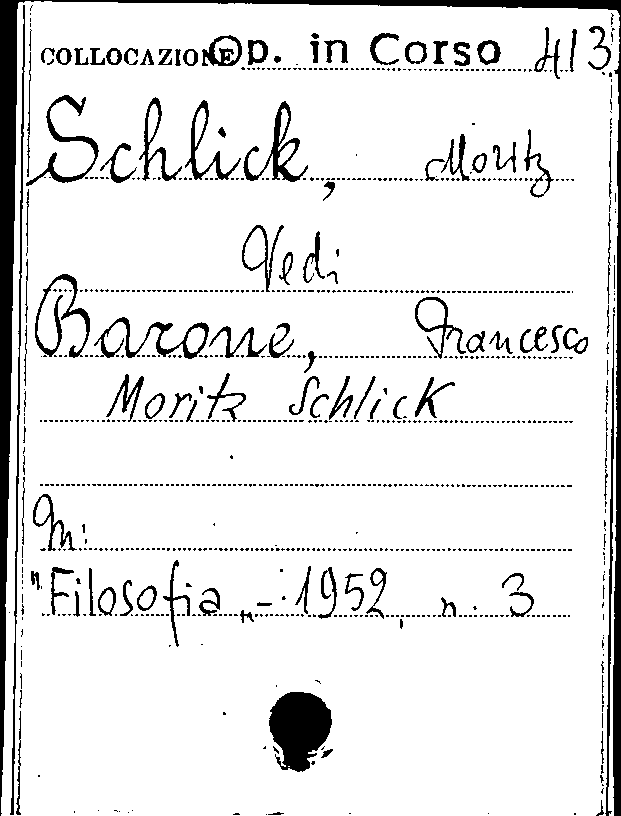 COLLOCAZIONE Op. in Corso 413
Schlick, Moritz
Vedi
Barone, Francesco
Moritz Schlick
In:
"Filosofia„ - 1952, n. 3